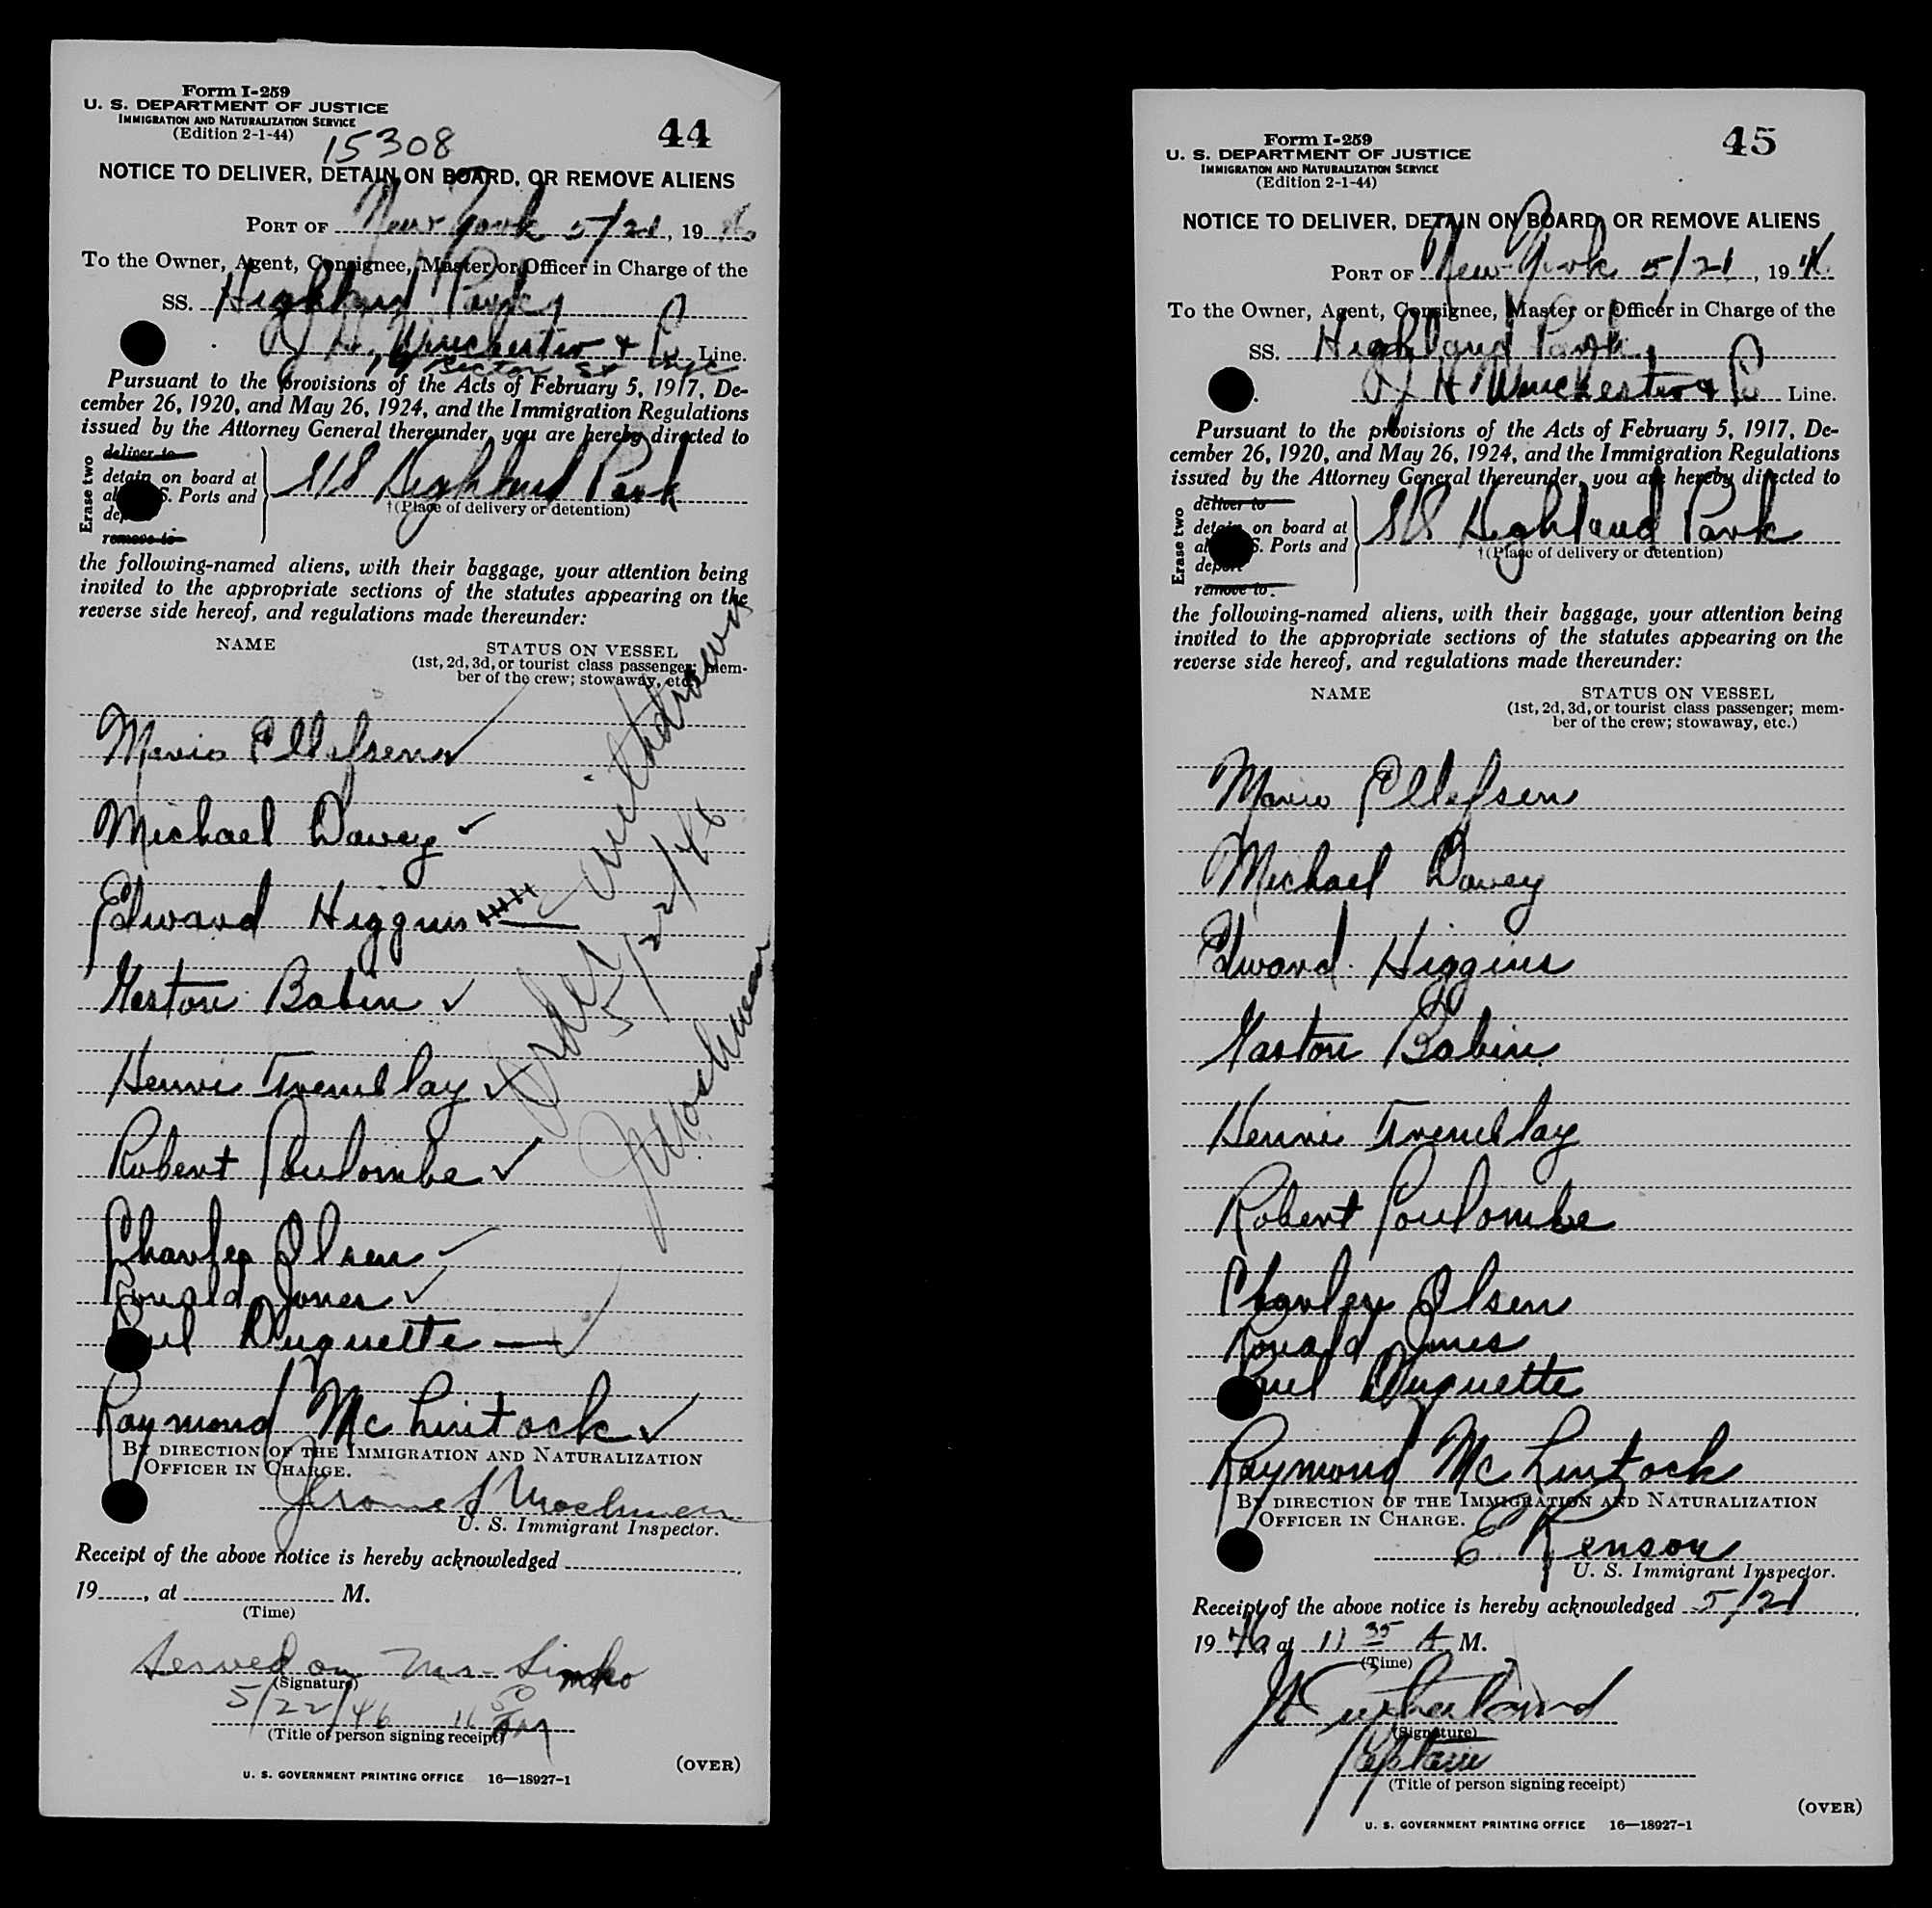 Form I-259
U. S. DEPARTMENT OF JUSTICE
IMMIGRATION AND NATURALIZATION SERVICE
(Edition 2-1-44)
15308
44
NOTICE TO DELIVER, DETAIN ON BOARD, OR REMOVE ALIENS
PORT OF New York 5/21, 19 46
To the Owner, Agent, Consignee, Master or Officer in Charge of the
SS. Highland Park,
J H. Winchester & Co Line.
19 Rector St NYC
Pursuant to the provisions of the Acts of February 5, 1917, De-
cember 26, 1920, and May 26, 1924, and the Immigration Regulations
issued by the Attorney General thereunder, you are hereby directed to
Erase two
deliver to
detain on board at
al S. Ports and
dep
remove to
S/S Highland Park
†(Place of delivery or detention)
the following-named aliens, with their baggage, your attention being
invited to the appropriate sections of the statutes appearing on the
reverse side hereof, and regulations made thereunder:
NAME
STATUS ON VESSEL
(1st, 2d, 3d, or tourist class passenger; mem-
ber of the crew; stowaway, etc.)
Mario Ellefsen ✓
Michael Davey ✓
Edward Higgins
Gaston Babin ✓
Henri Tremblay ✓
Robert Poulombe ✓
Charles Olsen ✓
Ronald Jones ✓
Paul Duquette — ✓
Raymond McLintock ✓
Order withdrawn
5/22/46
J Moshman
BY DIRECTION OF THE IMMIGRATION AND NATURALIZATION
OFFICER IN CHARGE.
Jerome J Moshman
U. S. Immigrant Inspector.
Receipt of the above notice is hereby acknowledged
19, at M.
(Time)
Served on Mr. Simko
(Signature)
5/22/46 11 50 AM
(Title of person signing receipt)
(OVER)
U. S. GOVERNMENT PRINTING OFFICE 16—18927-1
Form I-259
U. S. DEPARTMENT OF JUSTICE
IMMIGRATION AND NATURALIZATION SERVICE
(Edition 2-1-44)
45
NOTICE TO DELIVER, DETAIN ON BOARD, OR REMOVE ALIENS
PORT OF New York 5/21, 19 46
To the Owner, Agent, Consignee, Master or Officer in Charge of the
SS. Highland Park,
J H Winchester & Co Line.
Pursuant to the provisions of the Acts of February 5, 1917, De-
cember 26, 1920, and May 26, 1924, and the Immigration Regulations
issued by the Attorney General thereunder, you are hereby directed to
Erase two
deliver to
detain on board at
al S. Ports and
deport
remove to
SS Highland Park
†(Place of delivery or detention)
the following-named aliens, with their baggage, your attention being
invited to the appropriate sections of the statutes appearing on the
reverse side hereof, and regulations made thereunder:
NAME
STATUS ON VESSEL
(1st, 2d, 3d, or tourist class passenger; mem-
ber of the crew; stowaway, etc.)
Mario Ellefsen
Michael Davey
Edward Higgins
Gaston Babin
Henri Tremblay
Robert Poulombe
Charley Olsen
Ronald Jones
Paul Duquette
Raymond McLintock
BY DIRECTION OF THE IMMIGRATION AND NATURALIZATION
OFFICER IN CHARGE.
E Renson
U. S. Immigrant Inspector.
Receipt of the above notice is hereby acknowledged 5/21
19 46, at 11 35 A M.
(Time)
(Signature)
Captain
(Title of person signing receipt)
(OVER)
U. S. GOVERNMENT PRINTING OFFICE 16—18927-1